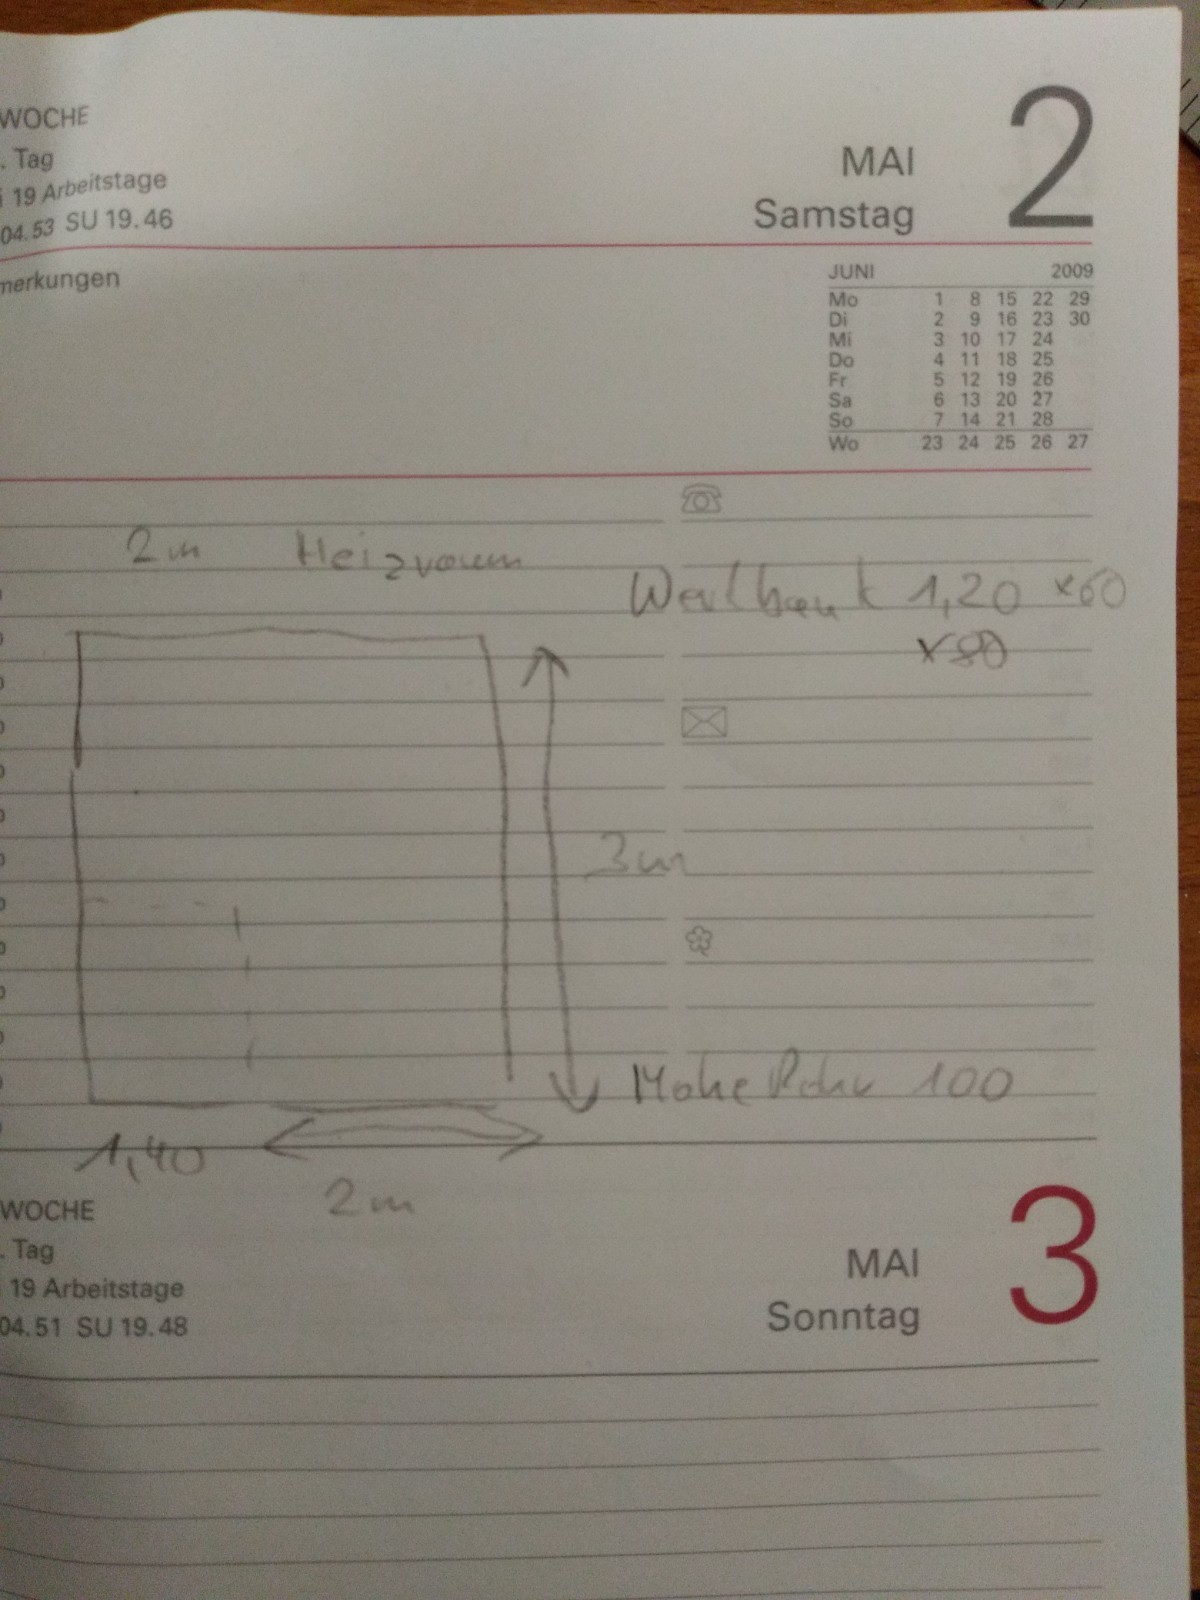 WOCHE
. Tag
19 Arbeitstage
04.53 SU 19.46
MAI
Samstag
2
merkungen
JUNI 2009
Mo 1 8 15 22 29
Di 2 9 16 23 30
Mi 3 10 17 24
Do 4 11 18 25
Fr 5 12 19 26
Sa 6 13 20 27
So 7 14 21 28
Wo 23 24 25 26 27
2m Heizraum
Werkbank 1,20 x60
x80
3m
Höhe Rohr 100
1,40
2m
WOCHE
. Tag
19 Arbeitstage
04.51 SU 19.48
MAI
Sonntag
3